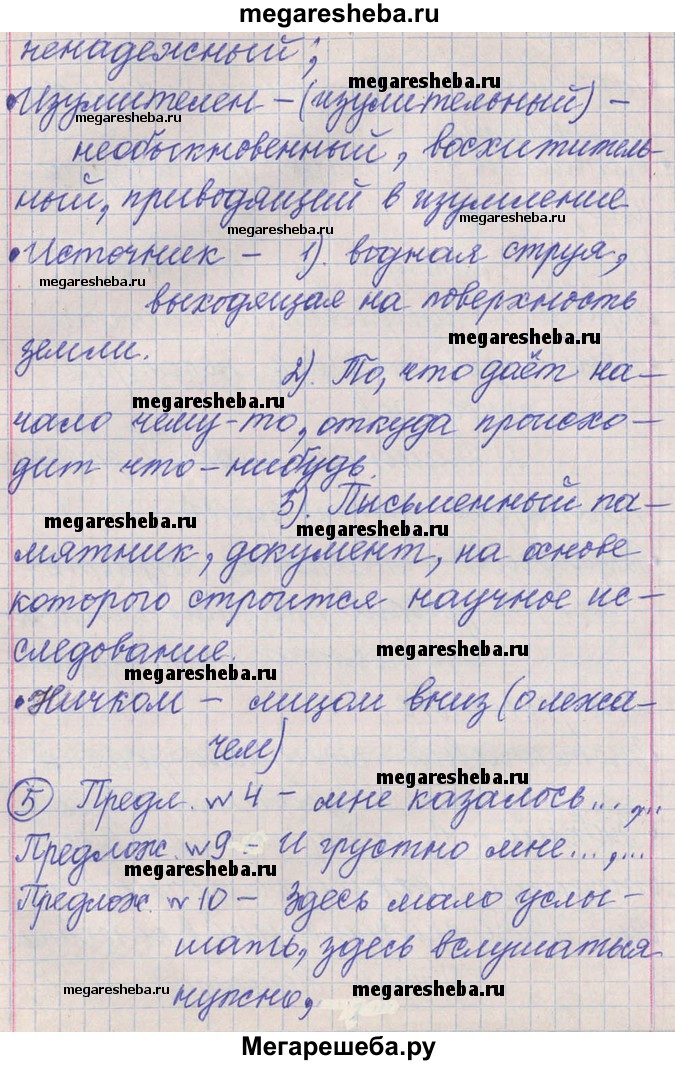 megaresheba.ru
ненадежный;
megaresheba.ru
•Изумителен – (изумительный) –
megaresheba.ru
необыкновенный, восхититель-
ный, приводящий в изумление
megaresheba.ru megaresheba.ru
•Источник – 1). водная струя,
megaresheba.ru
выходящая на поверхность
земли.
megaresheba.ru
2). То, что даёт на-
megaresheba.ru
чало чему-то, откуда происхо-
дит что-нибудь.
3). Письменный па-
megaresheba.ru megaresheba.ru
мятник, документ, на основе
которого строится научное ис-
следование.
megaresheba.ru
megaresheba.ru
•Ничком – лицом вниз (о лежа-
чем)
megaresheba.ru
5 Предл. №4 – мне казалось..., ...
Предлож. №9 – И грустно мне..., ...
megaresheba.ru
Предлож. №10 – Здесь мало услы-
шать, здесь вслушаться
megaresheba.ru megaresheba.ru
нужно,
Мегарешеба.ру